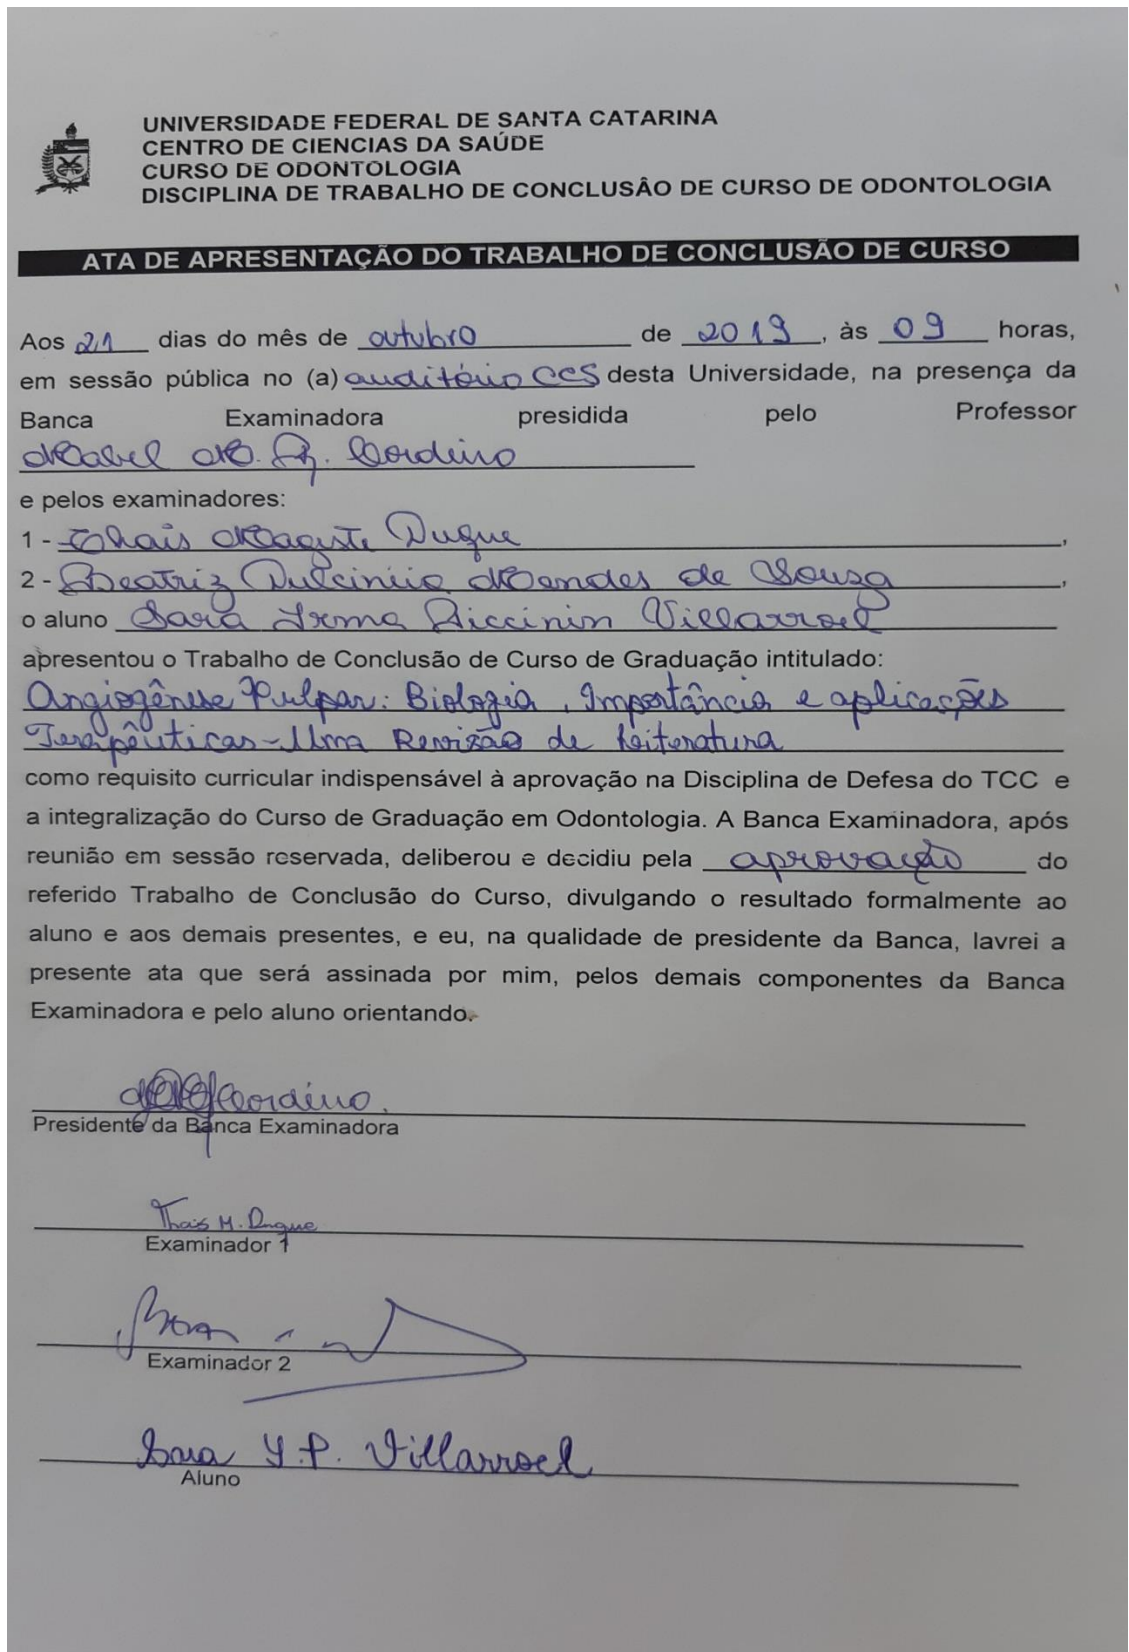 UNIVERSIDADE FEDERAL DE SANTA CATARINA
CENTRO DE CIENCIAS DA SAÚDE
CURSO DE ODONTOLOGIA
DISCIPLINA DE TRABALHO DE CONCLUSÂO DE CURSO DE ODONTOLOGIA
ATA DE APRESENTAÇÃO DO TRABALHO DE CONCLUSÃO DE CURSO
Aos 21 dias do mês de outubro de 2019, às 09 horas,
em sessão pública no (a) auditório CCS desta Universidade, na presença da
Banca Examinadora presidida pelo Professor
Mabel M. R. Cordeiro
e pelos examinadores:
1 - Thais Mageste Duque,
2 - Beatriz Dulcineia Mendes de Souza,
o aluno Sara Irma Piccinin Villarroel
apresentou o Trabalho de Conclusão de Curso de Graduação intitulado:
Angiogênese Pulpar: Biologia, Importância e aplicações
Terapêuticas - Uma Revisão de Literatura
como requisito curricular indispensável à aprovação na Disciplina de Defesa do TCC e
a integralização do Curso de Graduação em Odontologia. A Banca Examinadora, após
reunião em sessão reservada, deliberou e decidiu pela aprovação do
referido Trabalho de Conclusão do Curso, divulgando o resultado formalmente ao
aluno e aos demais presentes, e eu, na qualidade de presidente da Banca, lavrei a
presente ata que será assinada por mim, pelos demais componentes da Banca
Examinadora e pelo aluno orientando.
Cordeiro.
Presidente da Banca Examinadora
Thais M. Duque
Examinador 1
Examinador 2
Sara I.P. Villarroel
Aluno